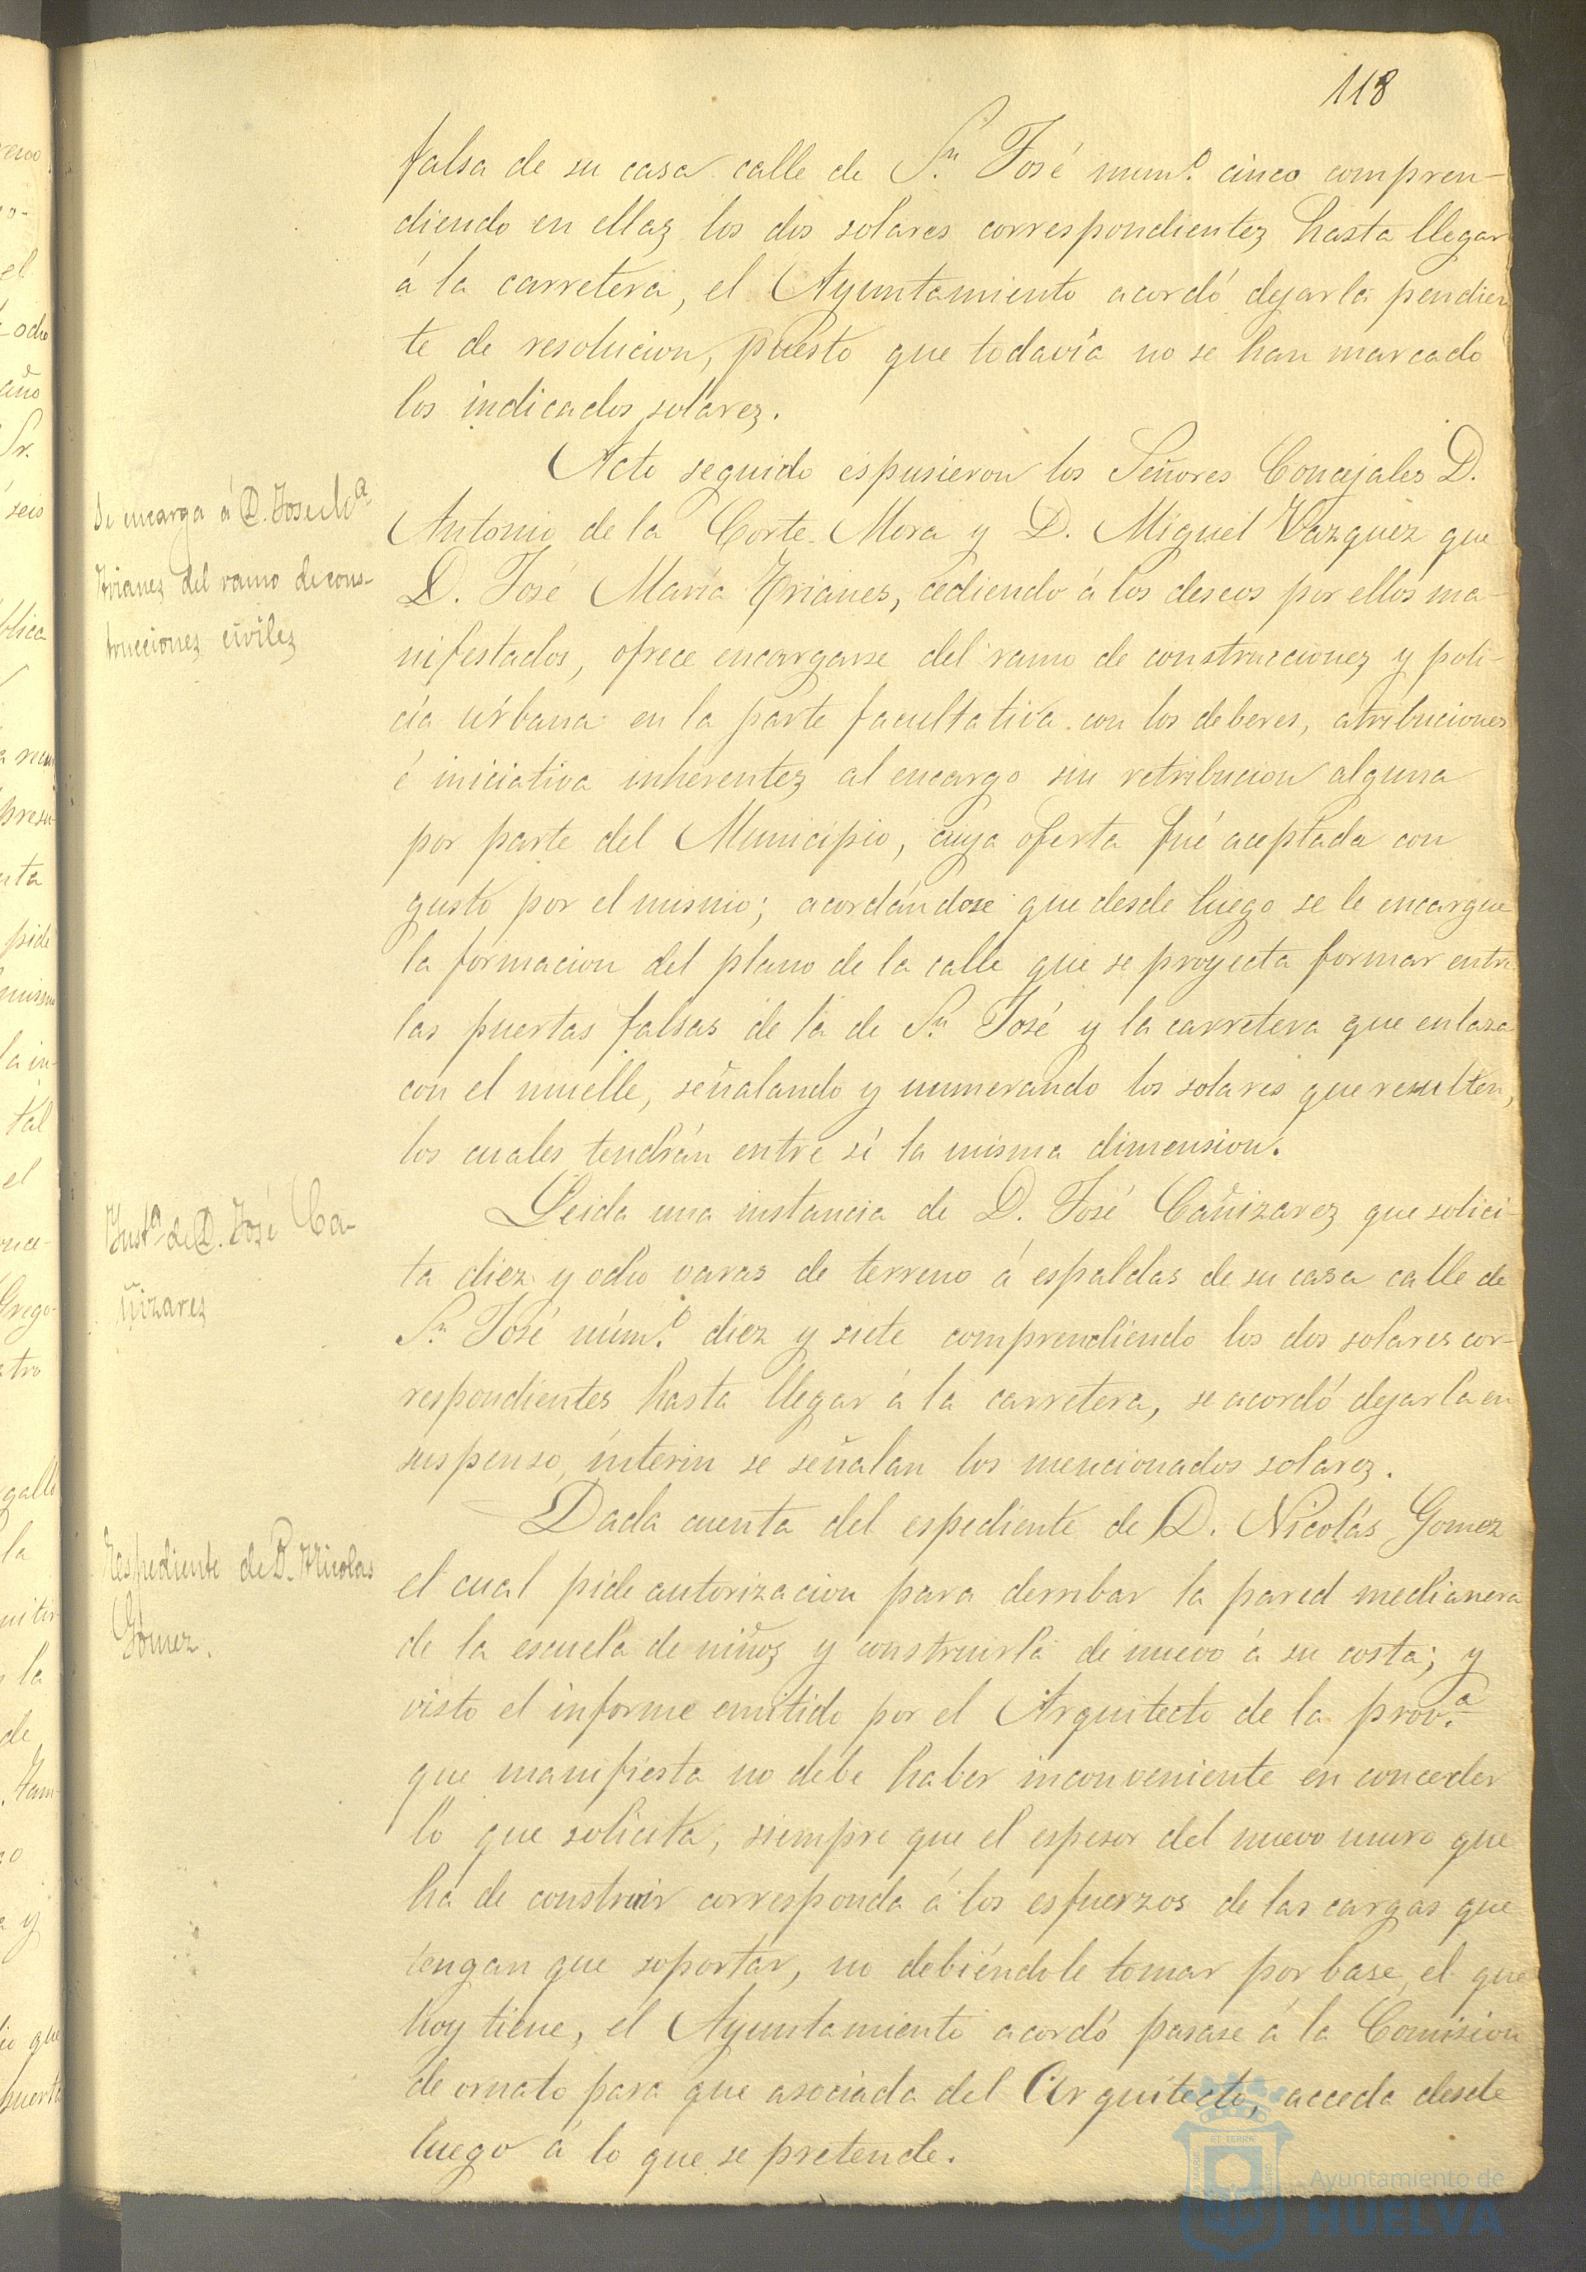 118
falsa de su casa calle de Sn. José númº. cinco compren-
diendo en ellaz los dos solares correspondientez hasta llegar
á la carretera, el Ayuntamiento acordó dejarla pendien
te de resolucion, puesto que todavía no se han marcado
los indicados solarez.
Acto seguido espusieron los Señores Concejales D.
Antonio de la Corte Mora y D. Miguel Vazquez que
D. José María Trianes, cediendo á los deseos por ellos ma-
nifestados, ofrece encargarse del ramo de construccionez y poli-
cía urbana en la parte facultativa con los deberes, atribuciones
é iniciativa inherentez al encargo sin retribucion alguna
por parte del Municipio, cuya oferta fué aceptada con
gusto por el mismo; acordándose que desde luego se le encargue
la formacion del plano de la calle que se proyecta formar entre
las puertas falsas de la de Sn. José y la carretera que enlaza
con el muelle, señalando y numerando los solares que resulten,
los cuales tendrán entre sí la misma dimension.
Leida una instancia de D. José Cañizarez que solici-
ta diez y ocho varas de terreno á espaldas de su casa calle de
Sn. José númº. diez y siete comprendiendo los dos solares cor-
respondientes hasta llegar á la carretera, se acordó dejarla en
suspenso, ínterin se señalan los mencionados solarez.
Dada cuenta del espediente de D. Nicolás Gomez
el cual pide autorizacion para derribar la pared medianera
de la escuela de niñoz y construirla de nuevo á su costa; y
visto el informe emitido por el Arquitecto de la prov.ª
que manifiesta no debe haber inconveniente en conceder
lo que solicita, siempre que el espesor del nuevo muro que
ha de construir corresponda á los esfuerzos de las cargas que
tengan que soportar, no debiéndole tomar por base, el que
hoy tiene, el Ayuntamiento acordó pasase á la Comision
de ornato para que asociada del Arquitecto, acceda desde
luego á lo que se pretende.
Se encarga á D. José Mª
Trianez del ramo de cons-
trucciones civilez
Instª de D. José Ca-
ñizarez
Espediente de D. Nicolas
Gómez.
Ayuntamiento de
HUELVA